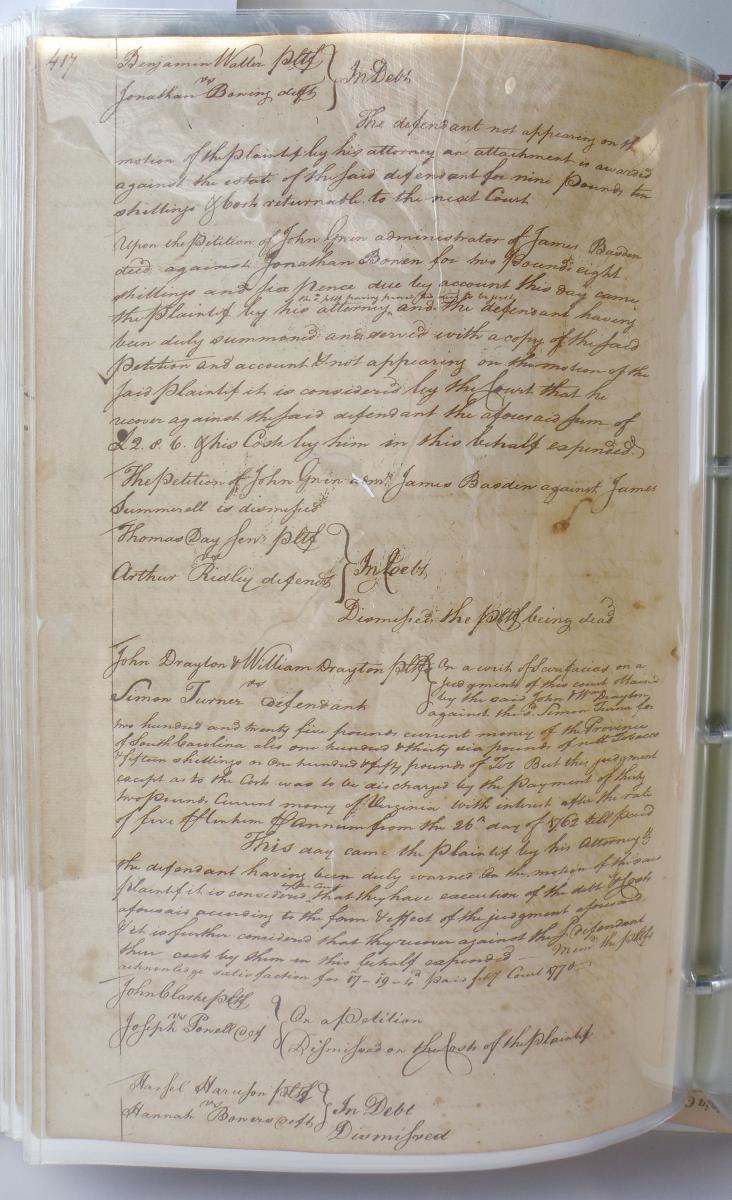 417
Benjamin Waller pltf
vs
Jonathan Bowing deft
In Debt
The defendant not appearing on the
motion of the plaintif by his attorney an attachment is awarded
against the estate of the said defendant for nine pounds ten
shillings & Costs returnable to the next Court
Upon the Petition of John Gwin administrator of James Basden
decd. against Jonathan Bowen for two Pounds eight
shillings and six pence due by account this day came
the plaintif by his attorney and the defendant having
been duly summoned and served with a copy of the said
Petition and account & not appearing on the motion of the
said plaintif it is considered by the Court that he
recover against the said defendant the aforesaid sum of
£2. 8. 6. & his Costs by him in this behalf expended
The petition of John Gwin admr. James Basden against James
Summerell is dismissed
Thomas Day Senr. pltf
vs
Arthur Ridley defendt
In Debt
Dismissed the pltf being dead
John Drayton & William Drayton pltfs
vs
Simon Turner defendant
On a writ of Scirfacias on a
judgment of this court obtained
by the said John & Wm Drayton
against the sd. Simon Turner for
two hundred and twenty five pounds current money of the Province
of South Carolina also one hundred & thirty six pounds of nett Tobacco
& fifteen shillings or One hundred & fifty pounds of Tob. But this judgment
except as to the Costs was to be discharged by the payment of thirty
two pounds Current money of Virginia with interest after the rate
of five ₱ Centum ₱ Annum from the 26th day of 1762 till paid
This day came the plaintif by his Attorney &
the defendant having been duly warned On the motion of the said
plaintif it is considered that they have execution of the debt & Costs
aforesaid according to the form & effect of the judgment aforesaid
& it is further considered that they recover against the sd. defendant
their costs by them in this behalf expended Memo. the pltfs
acknowledge satisfaction for 17-19-4d paid Court 1770
John Clarke pltf
vs
Joseph Powell def
On a Petition
Dismissed on the Costs of the plaintif
Hassel Harrison pltf
vs
Hannah Bowers deft
In Debt
Dismissed